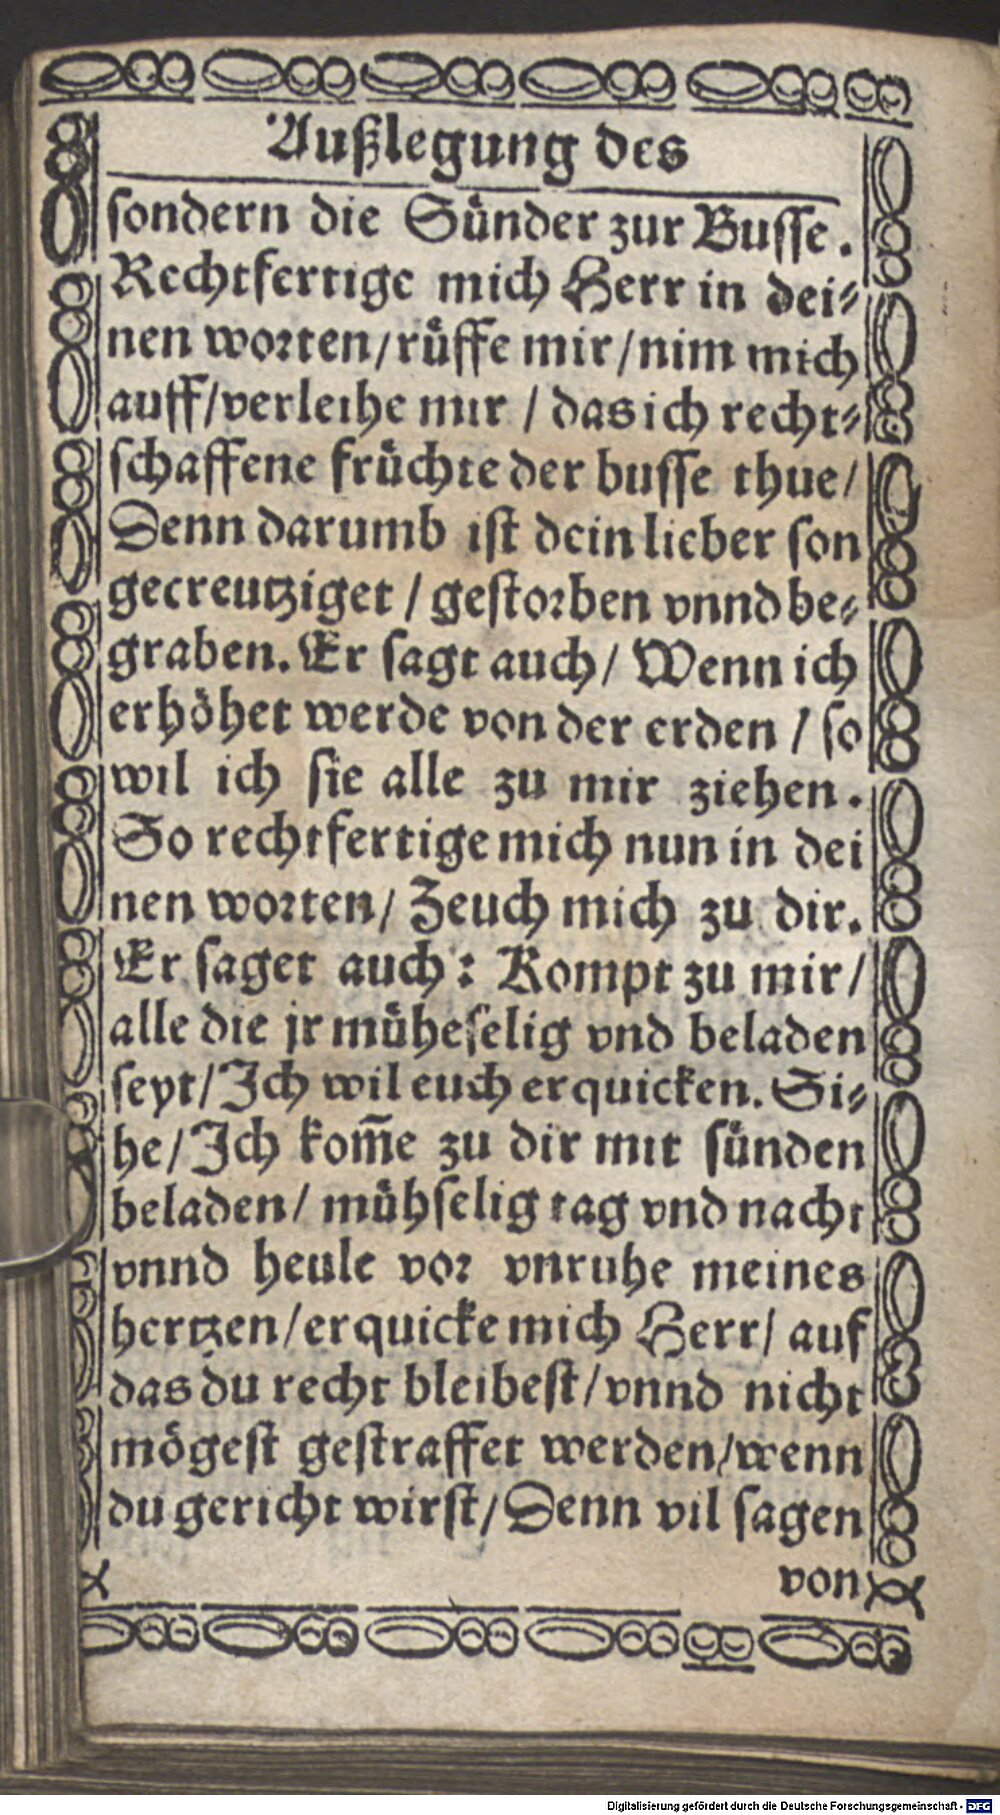 Außlegung des
sondern die Sünder zur Busse.
Rechtfertige mich Herr in dei⸗
nen worten/rüffe mir/nim mich
auff/verleihe mir / das ich recht⸗
schaffene früchte der busse thue/
Denn darumb ist dein lieber son
gecreutziget / gestorben vnnd be⸗
graben. Er sagt auch/ Wenn ich
erhöhet werde von der erden / so
wil ich sie alle zu mir ziehen.
So rechtfertige mich nun in dei
nen worten/ Zeuch mich zu dir.
Er saget auch: Kompt zu mir/
alle die jr müheselig vnd beladen
seyt/Ich wil euch erquicken. Si⸗
he/Ich kom̅e zu dir mit sünden
beladen/ mühselig tag vnd nacht
vnnd heule vor vnruhe meines
hertzen/erquicke mich Herr/ auf
das du recht bleibest/vnnd nicht
mögest gestraffet werden/wenn
du gericht wirst/Denn vil sagen
von
Digitalisierung gefördert durch die Deutsche Forschungsgemeinschaft - DFG